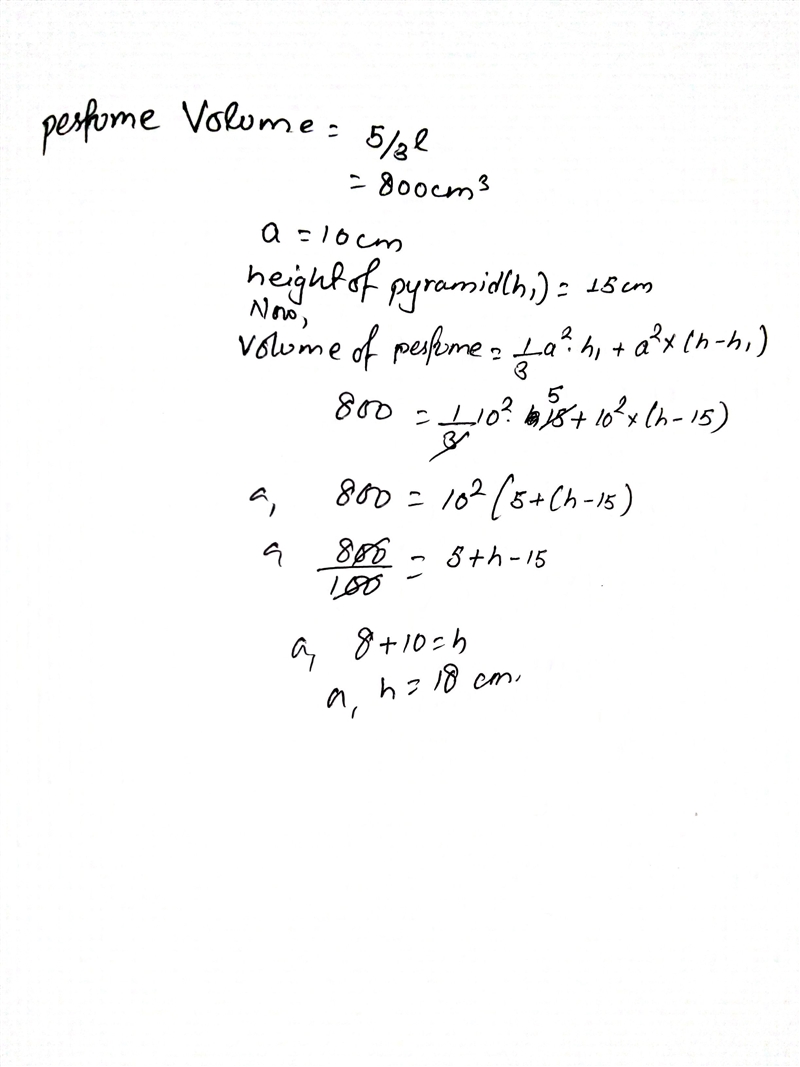 perfume Volume = 5/3 l
= 800cm³
a = 10cm
height of pyramid(h₁) = 15cm
Now,
Volume of perfume = 1/3 a²· h₁ + a² × (h-h₁)
800 = 1/3 10²· 15 5 + 10² × (h-15)
a, 800 = 10² (5+(h-15)
a 800/100 = 5+h-15
a, 8+10=h
a, h = 18 cm.